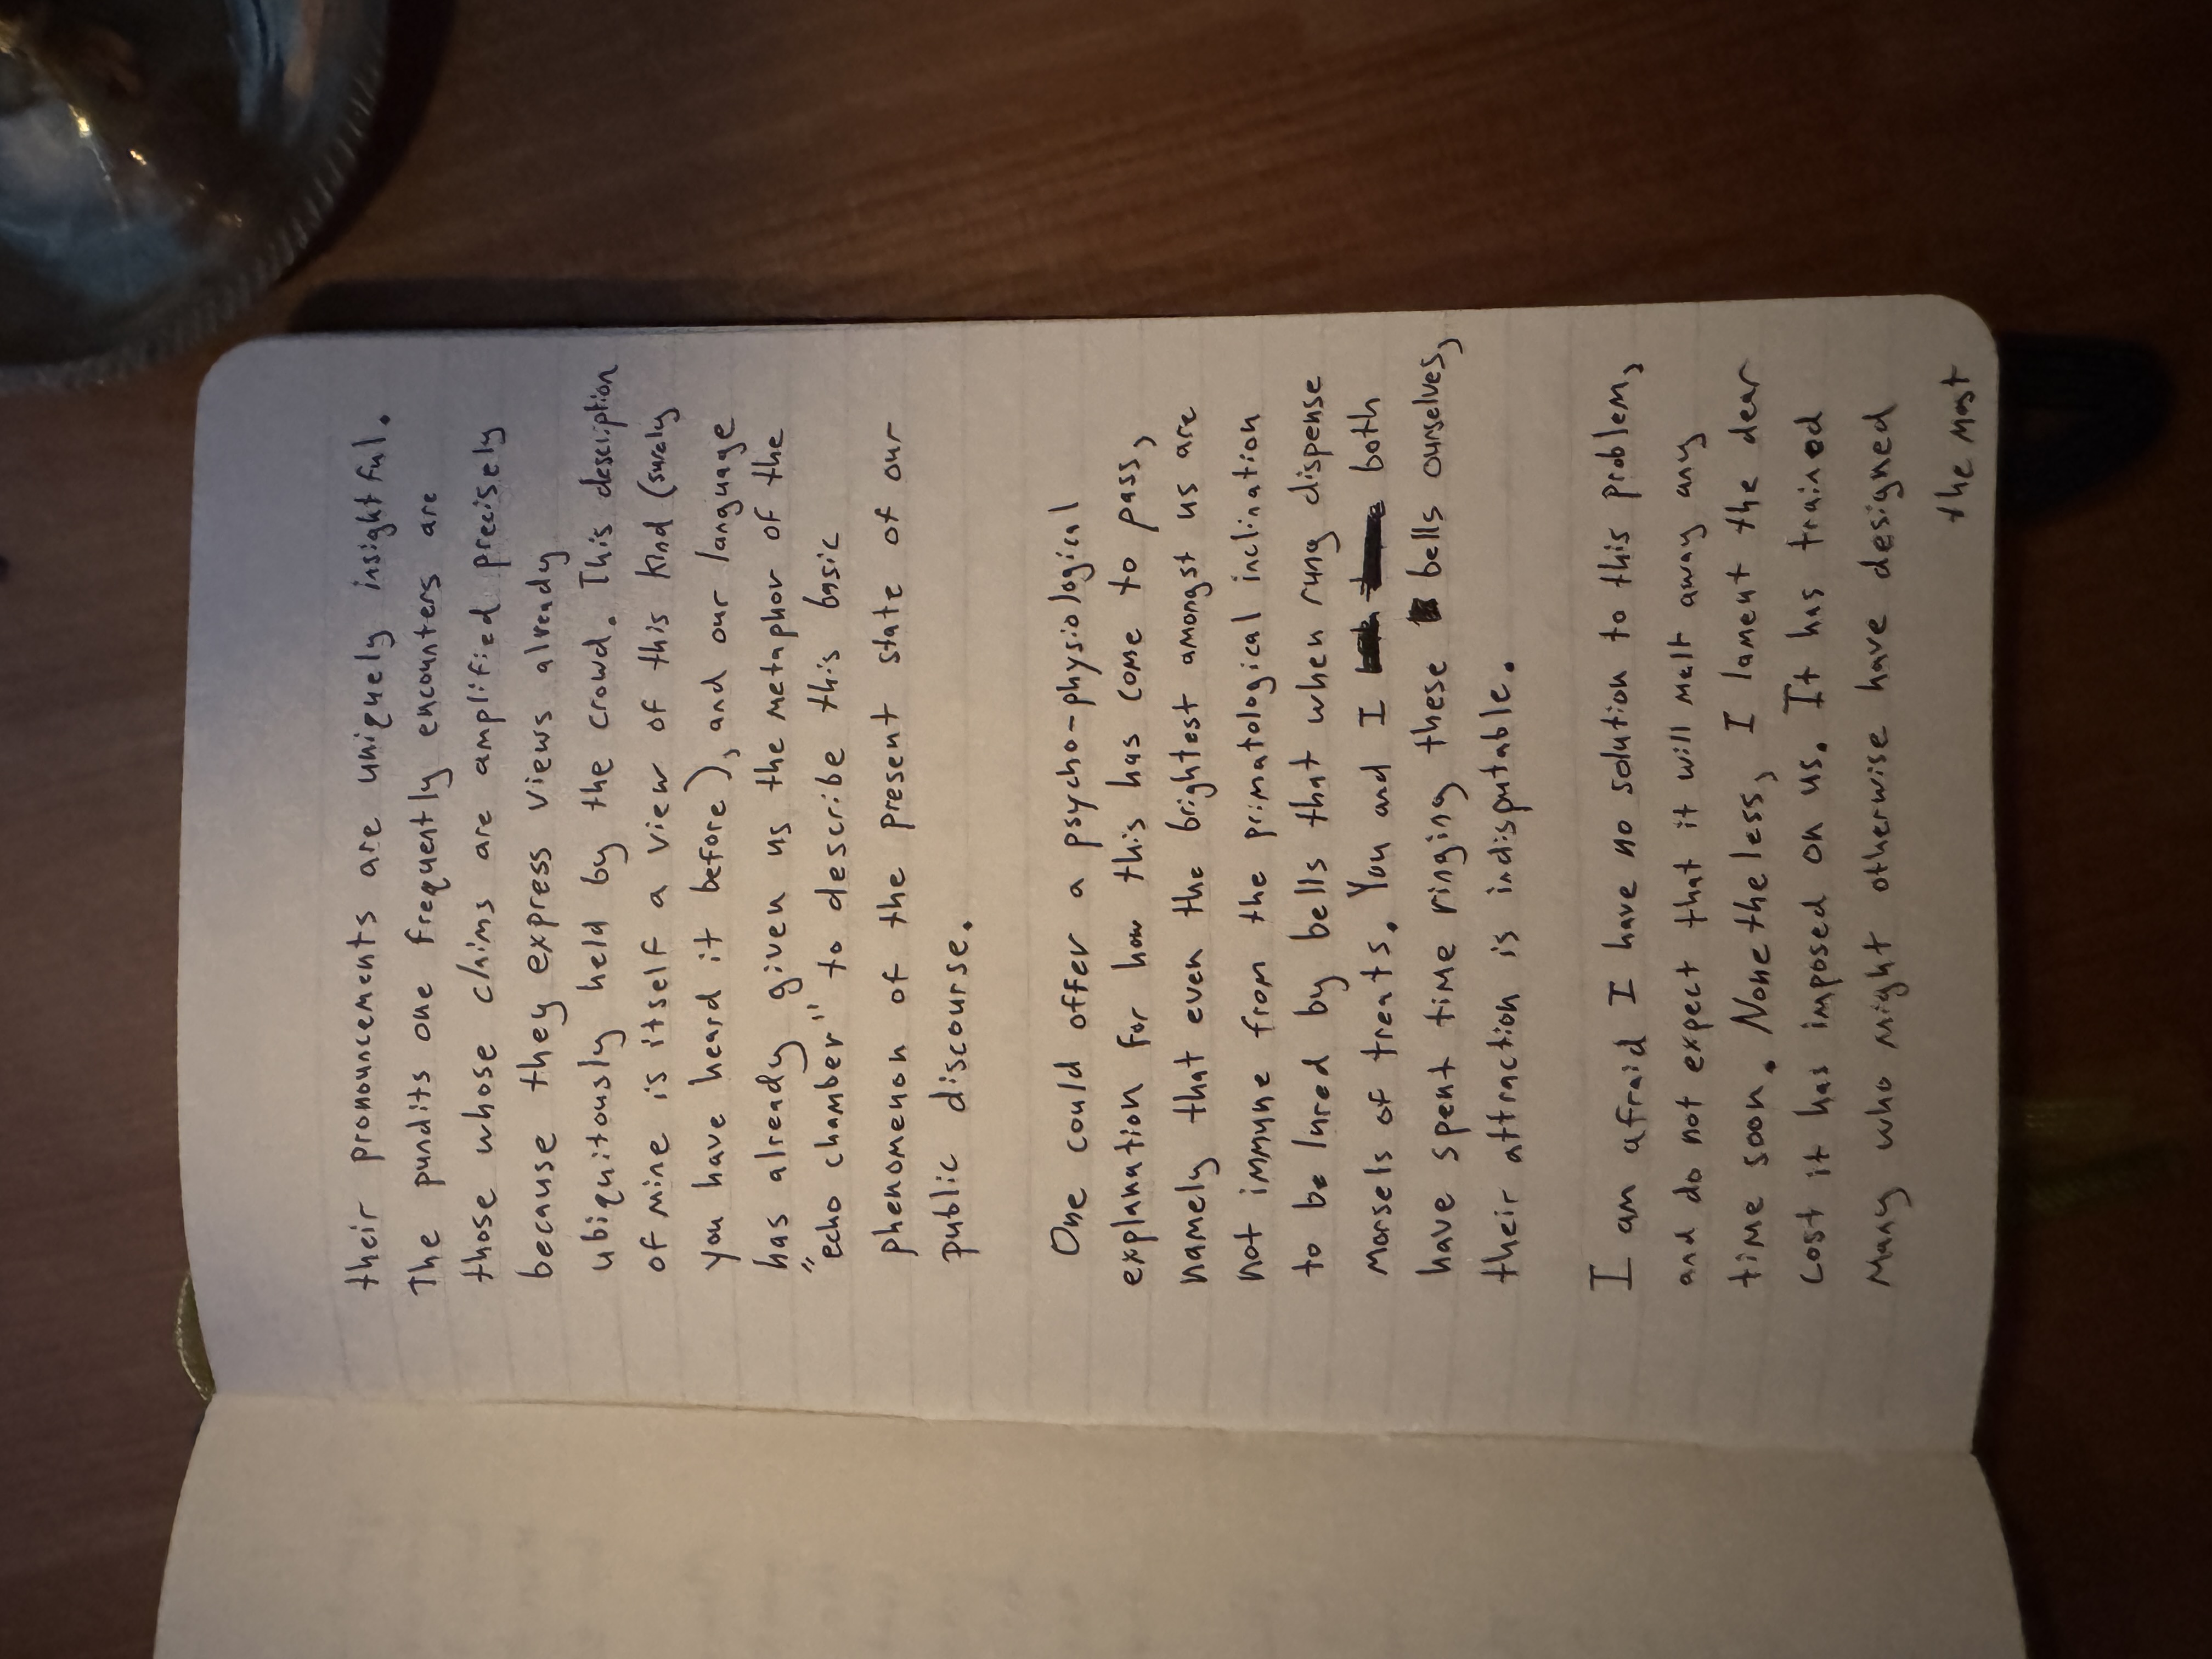 their pronouncements are uniquely insightful.
The pundits one frequently encounters are
those whose claims are amplified precisely
because they express views already
ubiquitously held by the crowd. This description
of mine is itself a view of this kind (surely
you have heard it before), and our language
has already given us the metaphor of the
"echo chamber" to describe this basic
phenomenon of the present state of our
public discourse.
One could offer a psycho-physiological
explanation for how this has come to pass,
namely that even the brightest amongst us are
not immune from the primatological inclination
to be lured by bells that when rung dispense
morsels of treats. You and I both
have spent time ringing these bells ourselves,
their attraction is indisputable.
I am afraid I have no solution to this problem,
and do not expect that it will melt away any
time soon. Nonetheless, I lament the dear
cost it has imposed on us. It has trained
many who might otherwise have designed
the most